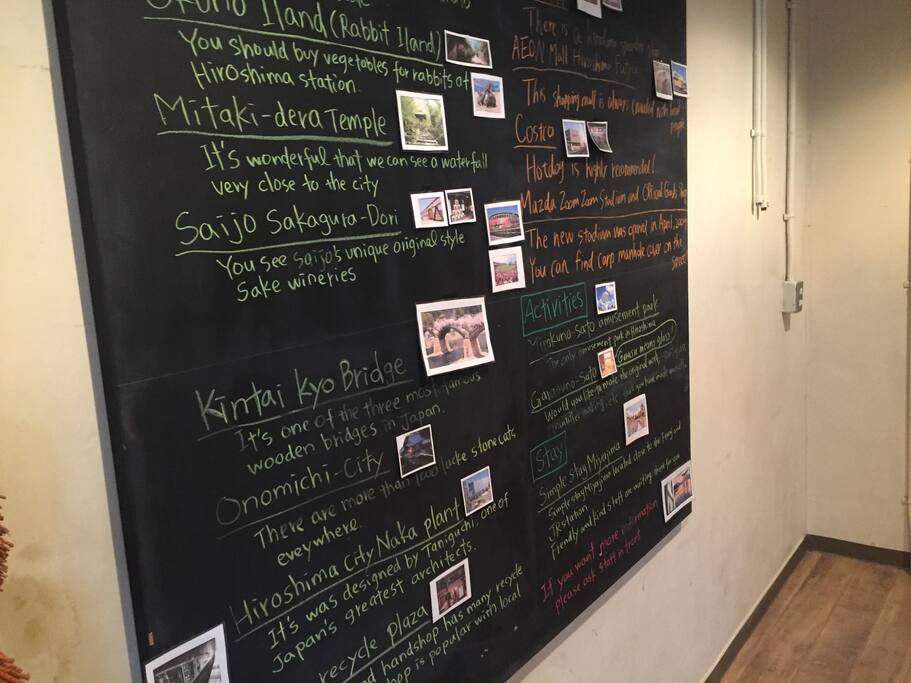 Okuno Iland (Rabbit Iland)
You should buy vegetables for rabbits at
Hiroshima station.
Mitaki-dera Temple
It's wonderful that we can see a waterfall
very close to the city
Saijo Sakagura-Dori
You see saijo's unique original style
Sake wineries
Kintai Kyo Bridge
It's one of the three most famous
wooden bridges in Japan.
Onomichi-City
There are more than lucke stone cats
eveywhere.
Hiroshima City Naka plant
It's was designed by Taniguchi, one of
Japan's greatest architects.
recycle plaza
handshop has many recycle
is popular with local
There is a
AEON Mall Hiroshima
This shopping mall is always crowded with
people
Costco
Hotdog is highly recommended!
Mazda Zoom Zoom Stadium and Official Goods Shop
The new stadium was opened in April
You can find carp manhole cover on the
street
Activities
amusement park
The only amusement park in Hiroshima
Garasuno-Sato Garasu means glass!
Would you like to make the original
Stay
Simple Stay Miyajima
Simple stay Miyajima located close to the ferry and
JR station.
Friendly and kind staff are waiting there for you
If you want more information
please ask staff in front